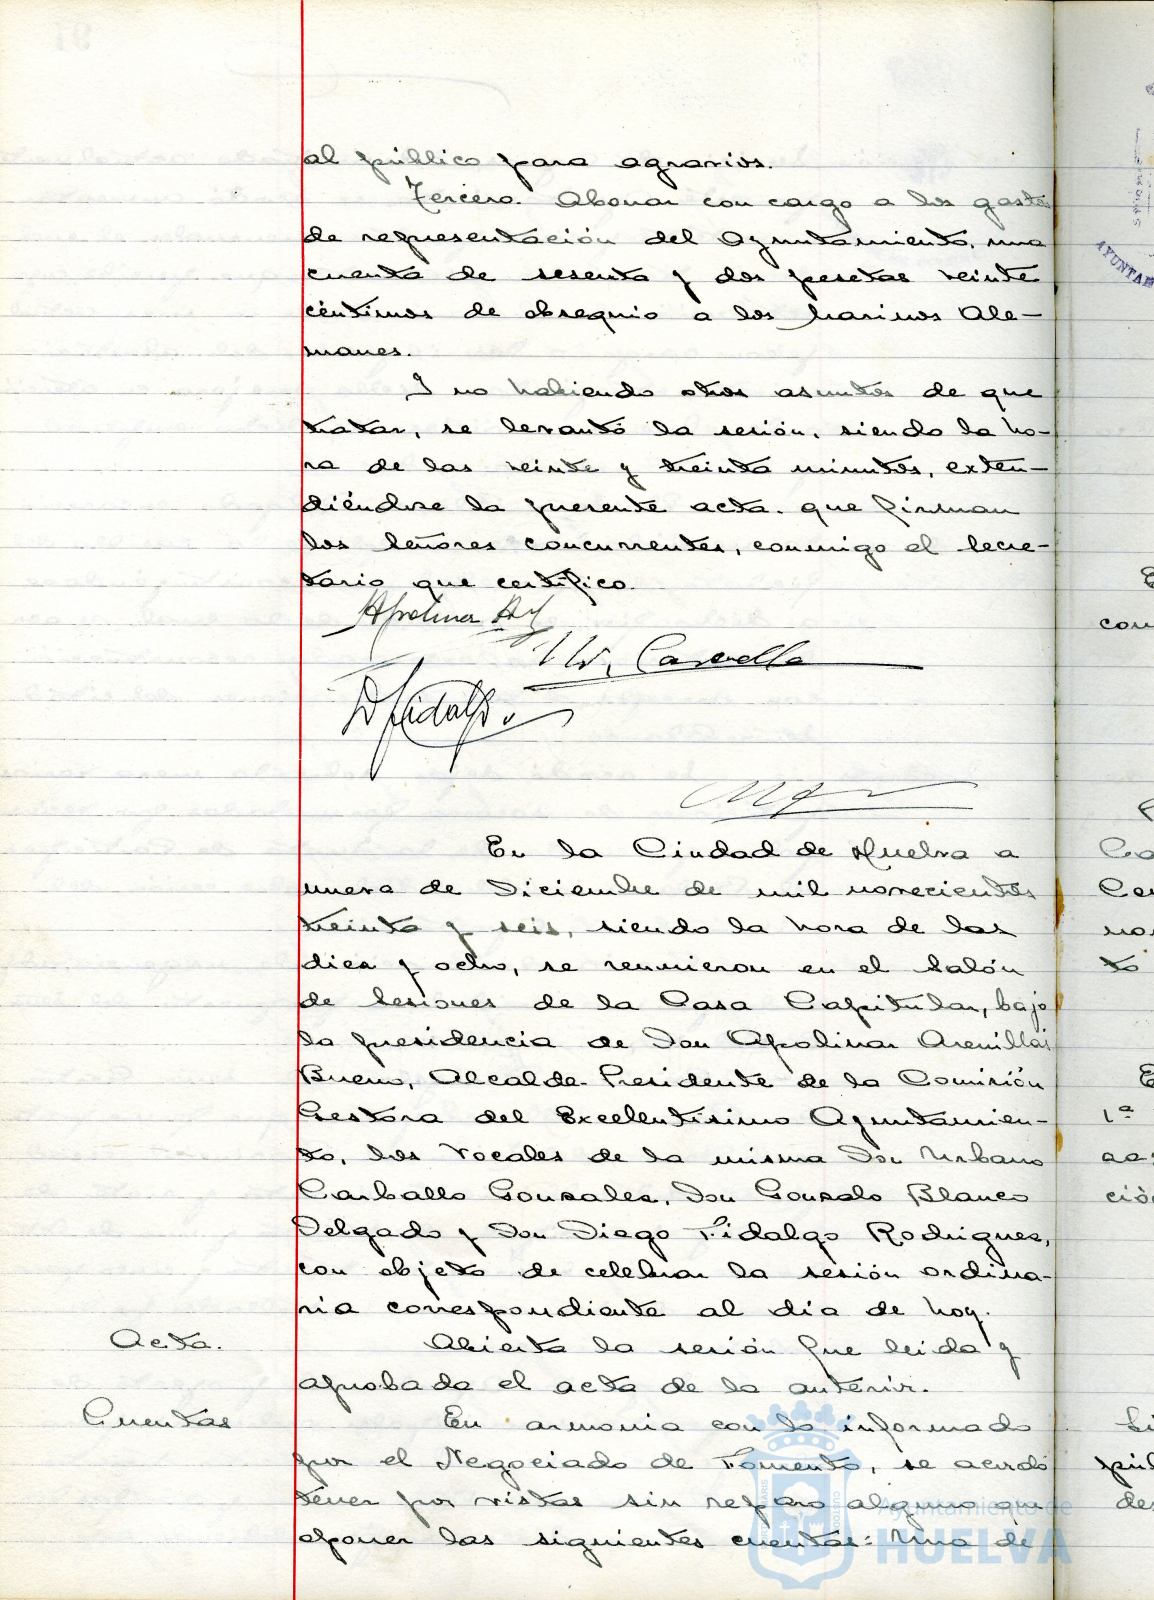 al público para agravios.
Tercero. Abonar con cargo a los gastos
de representación del Ayuntamiento, una
cuenta de sesenta y dos pesetas veinte
céntimos de obsequio a los Marinos Ale-
manes.
Y no habiendo otros asuntos de que
tratar, se levantó la sesión, siendo la ho-
ra de las veinte y treinta minutos, exten-
diéndose la presente acta. que firman
los Señores concurrentes, conmigo el Secre-
tario que certifico.
Apolinar
Carballo
D Fidalgo
En la Ciudad de Huelva a
nueva de Diciembre de mil novecientos
treinta y seis, siendo la hora de las
diez y ocho, se reunieron en el Salón
de Sesiones de la Casa Capitular, bajo
la presidencia de Don Apolinar Arenillas
Bueno, Alcalde-Presidente de la Comisión
Gestora del Excelentísimo Ayuntamien-
to, los Vocales de la misma Don Urbano
Carballo Gonzales, Don Gonzalo Blanco
Delgado y Don Diego Fidalgo Rodriguez,
con objeto de celebrar la sesión ordina-
ria correspondiente al dia de hoy.
Acta.
Abierta la sesión fue leida y
aprobada el acta de la anterior.
Cuentas
En armonia con lo informado
por el Negociado de Fomento, se acordó
tener por vistas sin reparo alguno que
oponer las siguientes cuentas: Una de
Ayuntamiento de
HUELVA